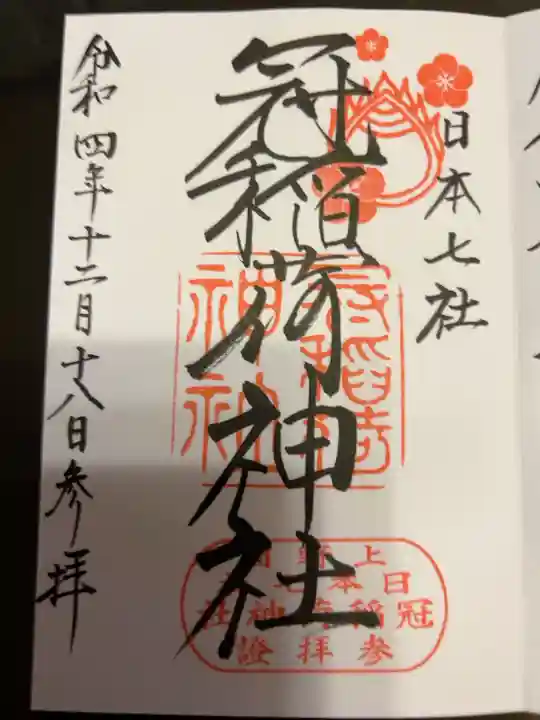 日本七社
冠稲荷神社
令和四年十二月十八日参拝
冠稲荷
神社
上野國
日本七社
冠稲荷神社
参拝證